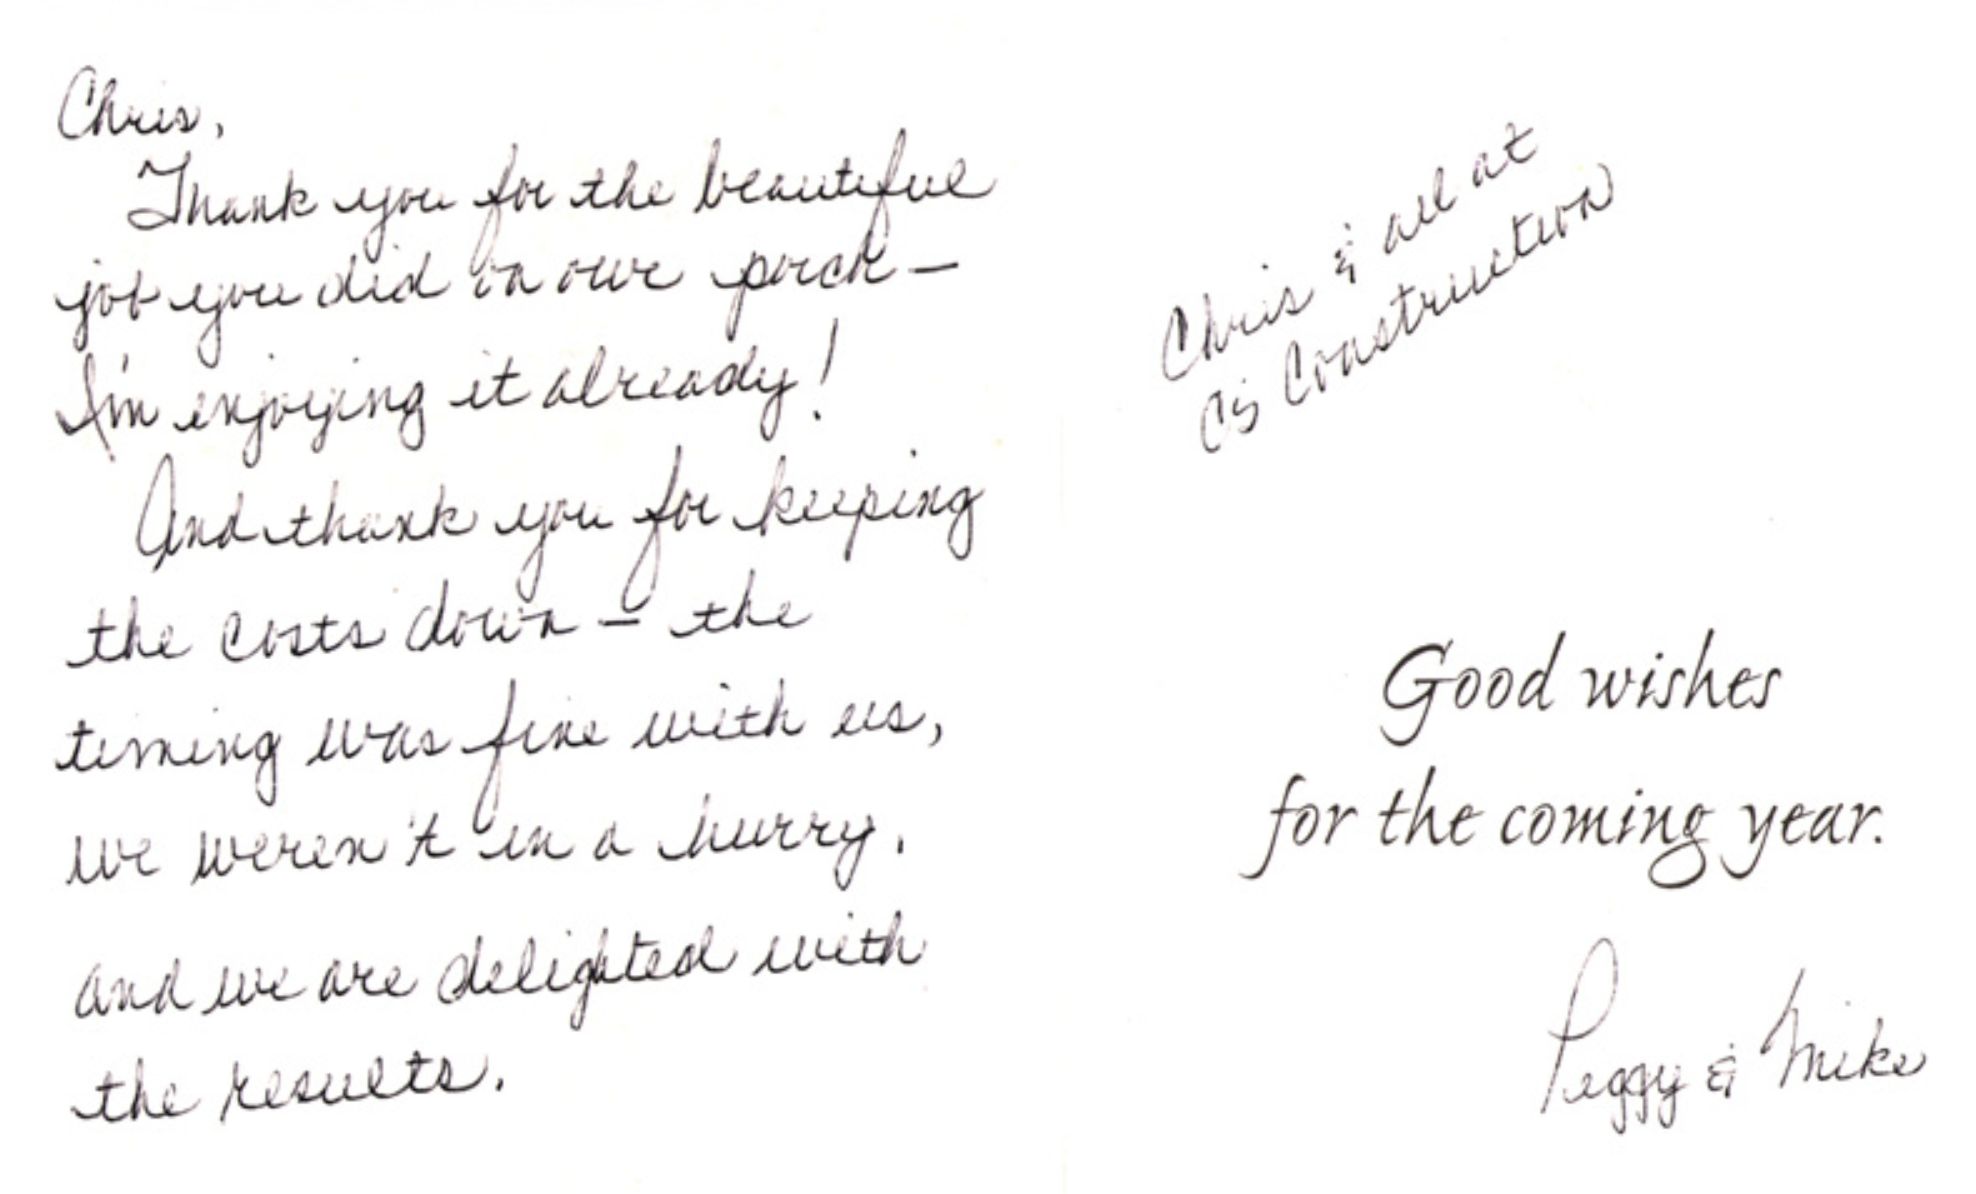 Chris,
Thank you for the beautiful
job you did on our porch –
I'm enjoying it already!
And thank you for keeping
the costs down – the
timing was fine with us,
we weren't in a hurry.
and we are delighted with
the results.
Chris & all at
CJs Construction
Good wishes
for the coming year.
Peggy & Mike